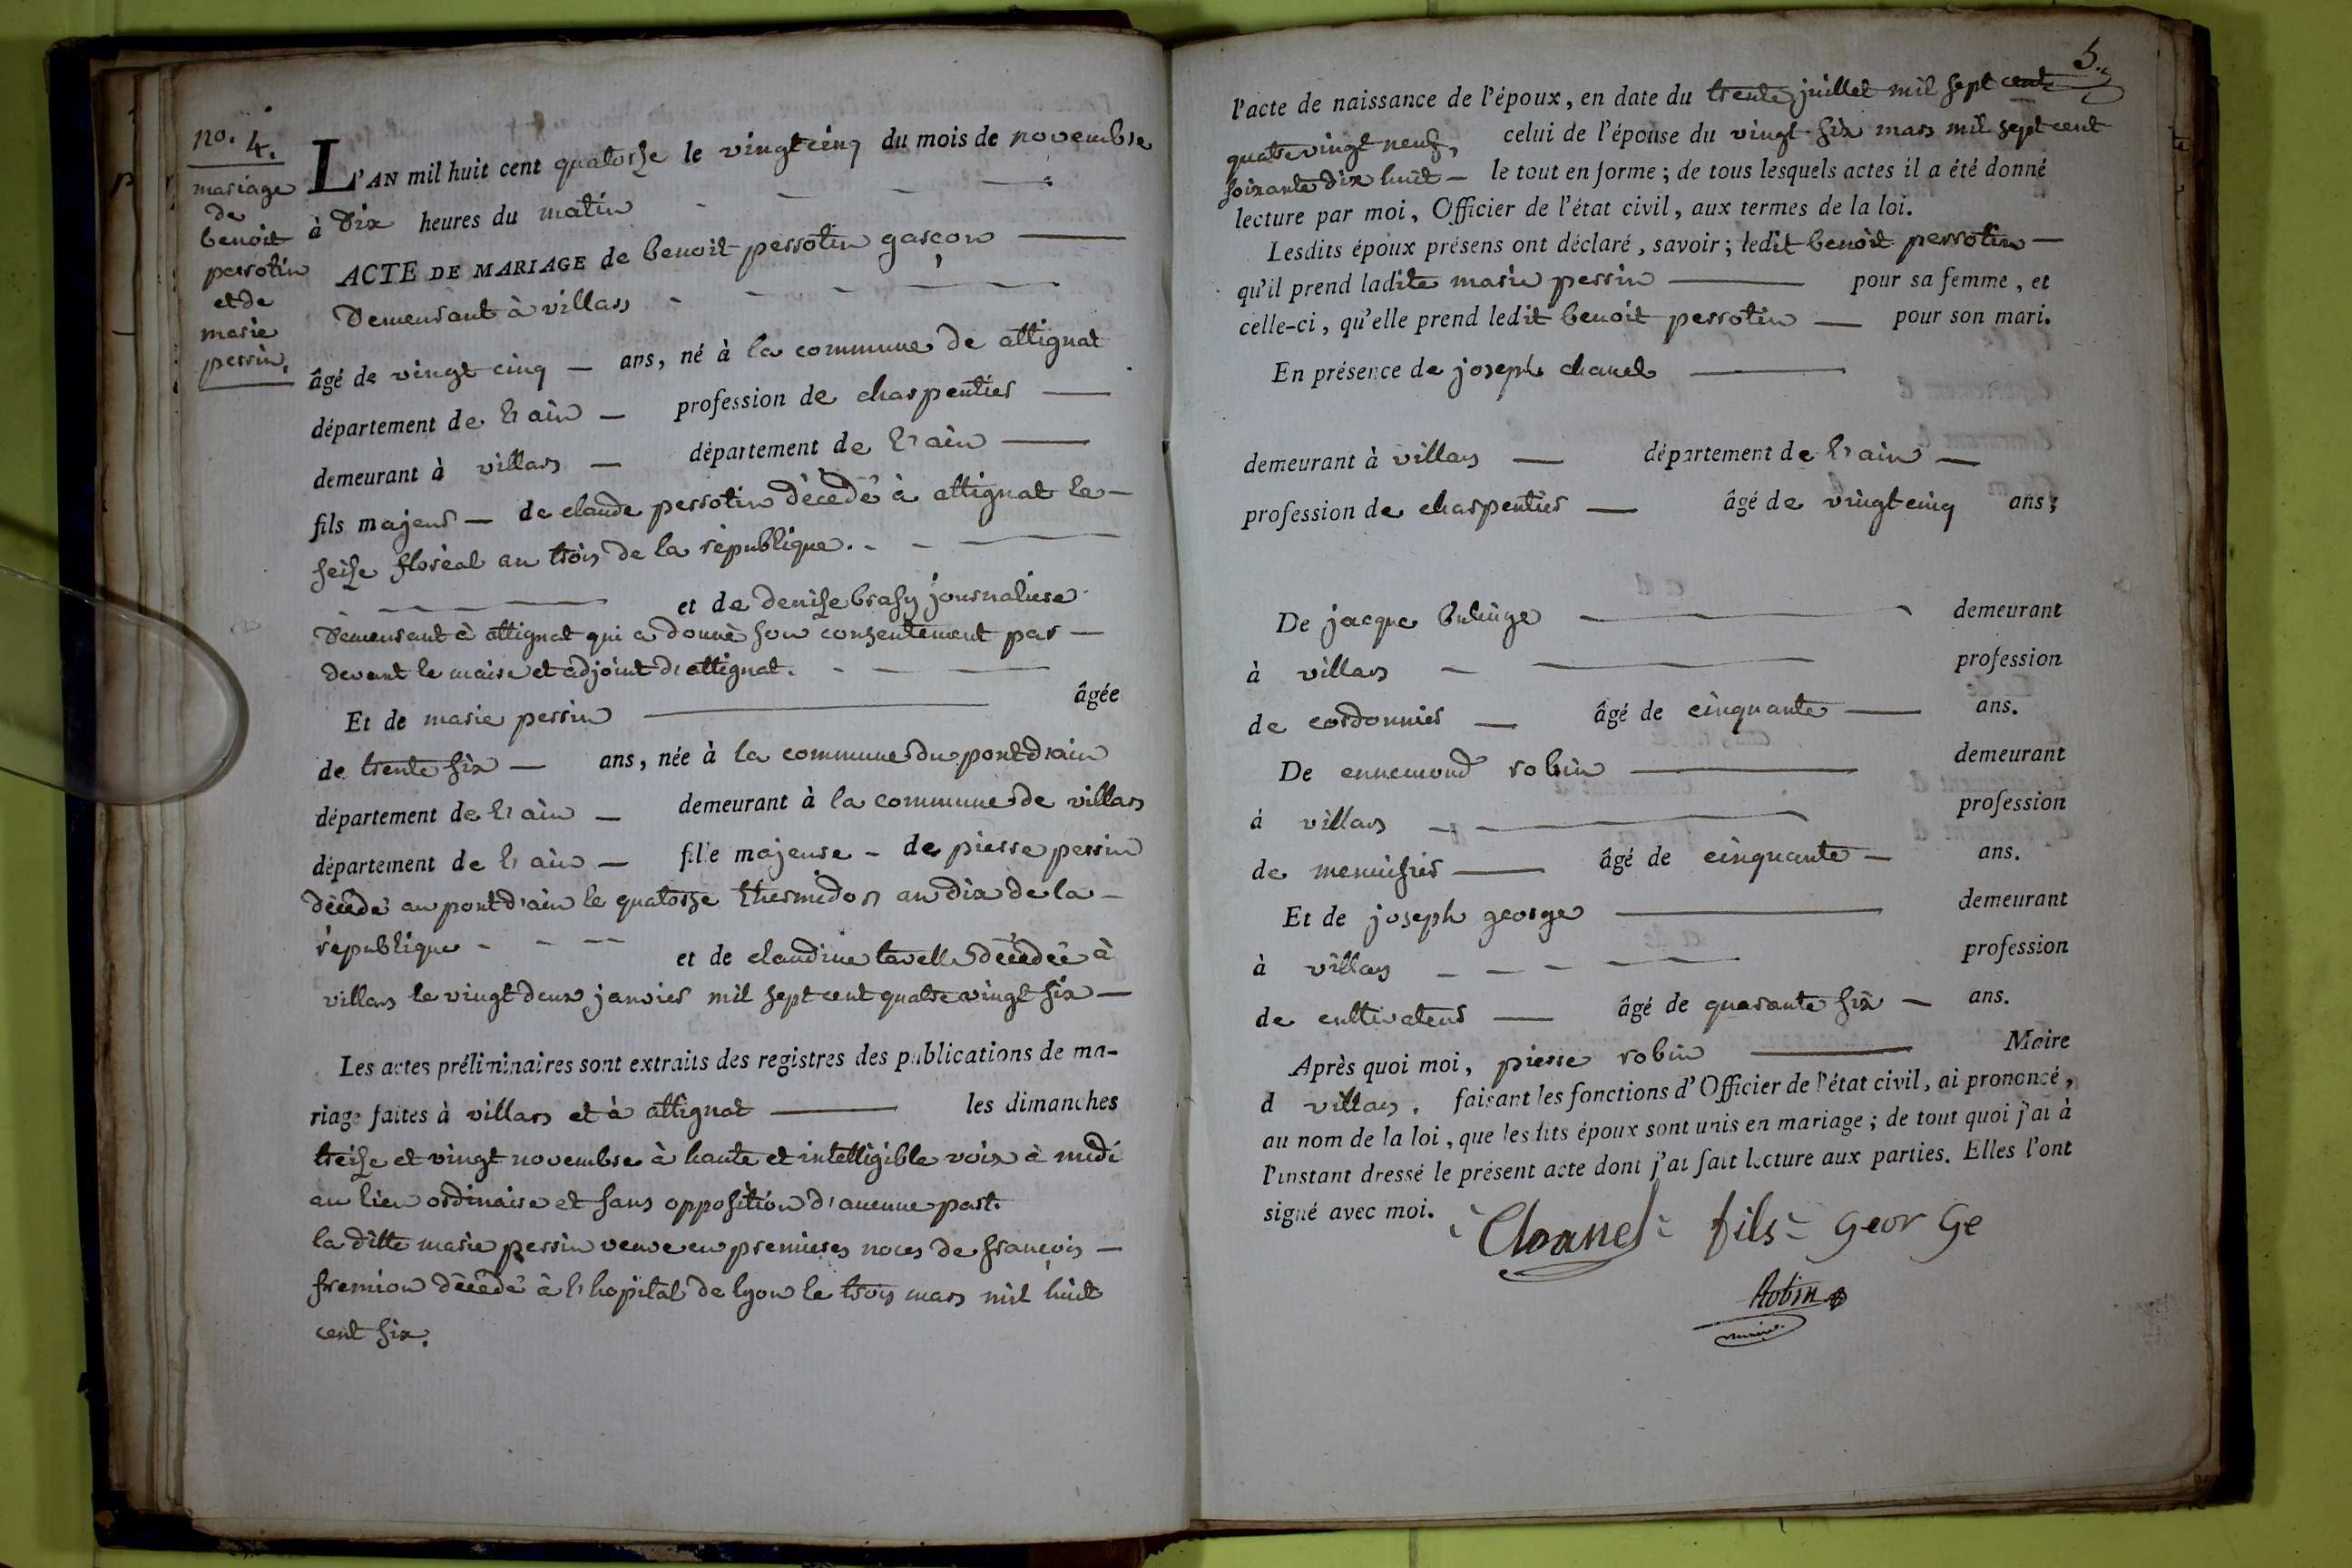 no. 4.
mariage
de
benoit
perrotin
et de
marie
perrin.
L'AN mil huit cent quatorse le vingt cinq du mois de novembre
à dix heures du matin - - - -
ACTE DE MARIAGE de benoit perrotin garçon —
demeurant à villars - - - —
âgé de vingt cinq — ans, né à la commune de attignat
département de l'ain — profession de charpentier —
demeurant à villars — département de l'ain —
fils majeur — de claude perrotin décédé à attignat le —
seise floréal an trois de la république. - - —
- — et de denise brasy journaliere
demeurant à attignat qui a donné son consentement par —
devant le maire et adjoint d'attignat. - - —
Et de marie perrin — âgée
de trente six — ans, née à la commune du pont d'ain
département de l'ain — demeurant à la commune de villars
département de l'ain — fille majeure - de pierre perrin
décédé au pont d'ain le quatorse thermidor an dix de la —
république - - — et de claudine tavelle décédée à
villars le vingt deux janvier mil sept cent quatre vingt six —
Les actes préliminaires sont extraits des registres des publications de ma-
riage faites à villars et à attignat — les dimanches
treise et vingt novembre à haute et intelligible voix à midi
au lieu ordinaire et sans opposition d'aucune part.
la ditte marie perrin veuve en premieres noces de françois —
fremion décédé à l'hopital de lyon le trois mars mil huit
cent six.
5.
l'acte de naissance de l'époux, en date du trente juillet mil sept cent
quatre vingt neuf, celui de l'épouse du vingt six mars mil sept cent
soixante dix huit — le tout en forme ; de tous lesquels actes il a été donné
lecture par moi, Officier de l'état civil, aux termes de la loi.
Lesdits époux présens ont déclaré, savoir ; ledit benoit perrotin —
qu'il prend ladite marie perrin — pour sa femme, et
celle-ci, qu'elle prend ledit benoit perrotin — pour son mari.
En présence de joseph chanel —
demeurant à villars — département de l'ain —
profession de charpentier — âgé de vingt cinq ans ;
De jacque — demeurant
à villars - — profession
de cordonnier — âgé de cinquante — ans.
De ennemond robin — demeurant
à villars - — profession
de menuisier — âgé de cinquante — ans.
Et de joseph george — demeurant
à villars - - - - — profession
de cultivateur — âgé de quarante six — ans.
Après quoi moi, pierre robin — Maire
d villars, faisant les fonctions d'Officier de l'état civil, ai prononcé,
au nom de la loi, que lesdits époux sont unis en mariage ; de tout quoi j'ai à
l'instant dressé le présent acte dont j'ai fait lecture aux parties. Elles l'ont
signé avec moi. Chanel fils - george
Robin
maire.